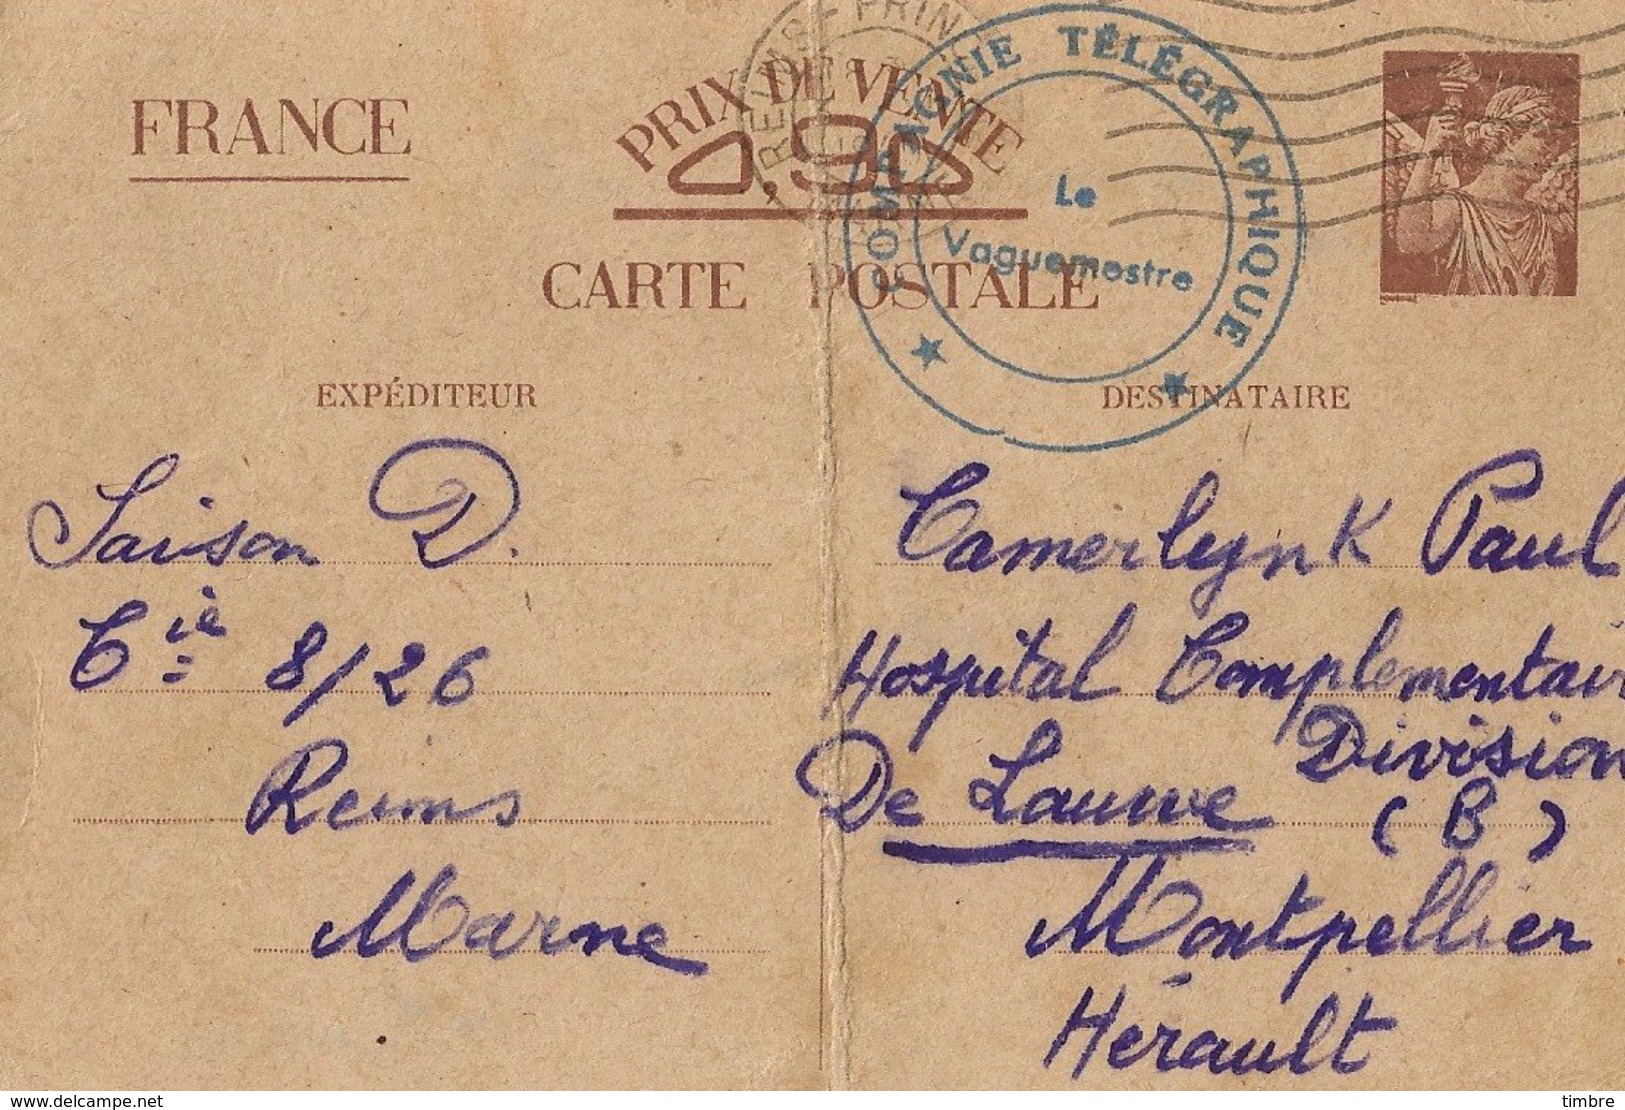 FRANCE
PRIX DE VENTE
0,90
CARTE POSTALE
REIMS-PRIN
COMPAGNIE TÉLÉGRAPHIQUE
Le
Vaguemestre
EXPÉDITEUR
Saison D.
Cie 8/26
Reims
Marne
DESTINATAIRE
Camerlynk Paul
Hospital Complementair
Division
De Lauwe (B)
Montpellier
Hérault
www.delcampe.net
timbre